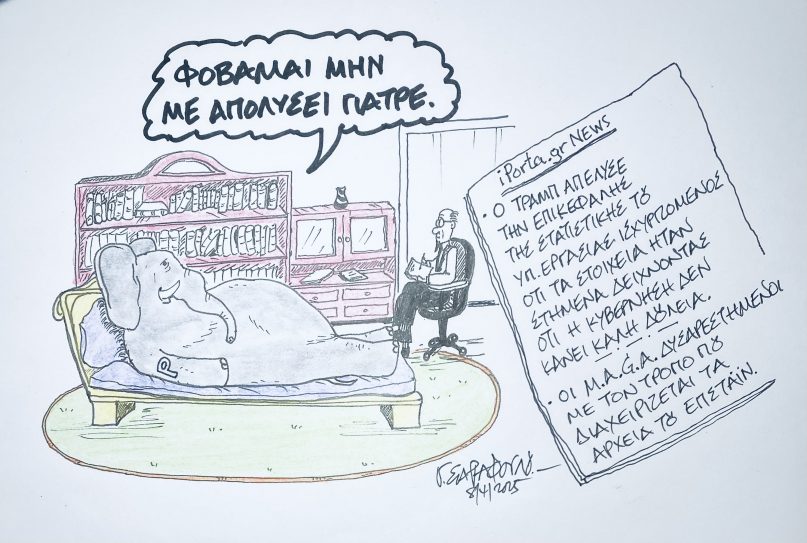 ΦΟΒΑΜΑΙ ΜΗΝ
ΜΕ ΑΠΟΛΥΣΕΙ ΓΙΑΤΡΕ.
iPorta.gr NEWS
• Ο ΤΡΑΜΠ ΑΠΕΛΥΣΕ
ΤΗΝ ΕΠΙΚΕΦΑΛΗΣ
ΤΗΣ ΣΤΑΤΙΣΤΙΚΗΣ ΤΟΥ
ΥΠ. ΕΡΓΑΣΙΑΣ ΙΣΧΥΡΙΖΟΜΕΝΟΣ
ΟΤΙ ΤΑ ΣΤΟΙΧΕΙΑ ΗΤΑΝ
ΣΤΗΜΕΝΑ ΔΕΙΧΝΟΝΤΑΣ
ΟΤΙ Η ΚΥΒΕΡΝΗΣΗ ΔΕΝ
ΚΑΝΕΙ ΚΑΛΗ ΔΟΥΛΕΙΑ.
• ΟΙ M.A.G.A. ΔΥΣΑΡΕΣΤΗΜΕΝΟΙ
ΜΕ ΤΟΝ ΤΡΟΠΟ ΠΟΥ
ΔΙΑΧΕΙΡΙΖΕΤΑΙ ΤΑ
ΑΡΧΕΙΑ ΤΟΥ ΕΠΣΤΑΪΝ.
8/4/2025